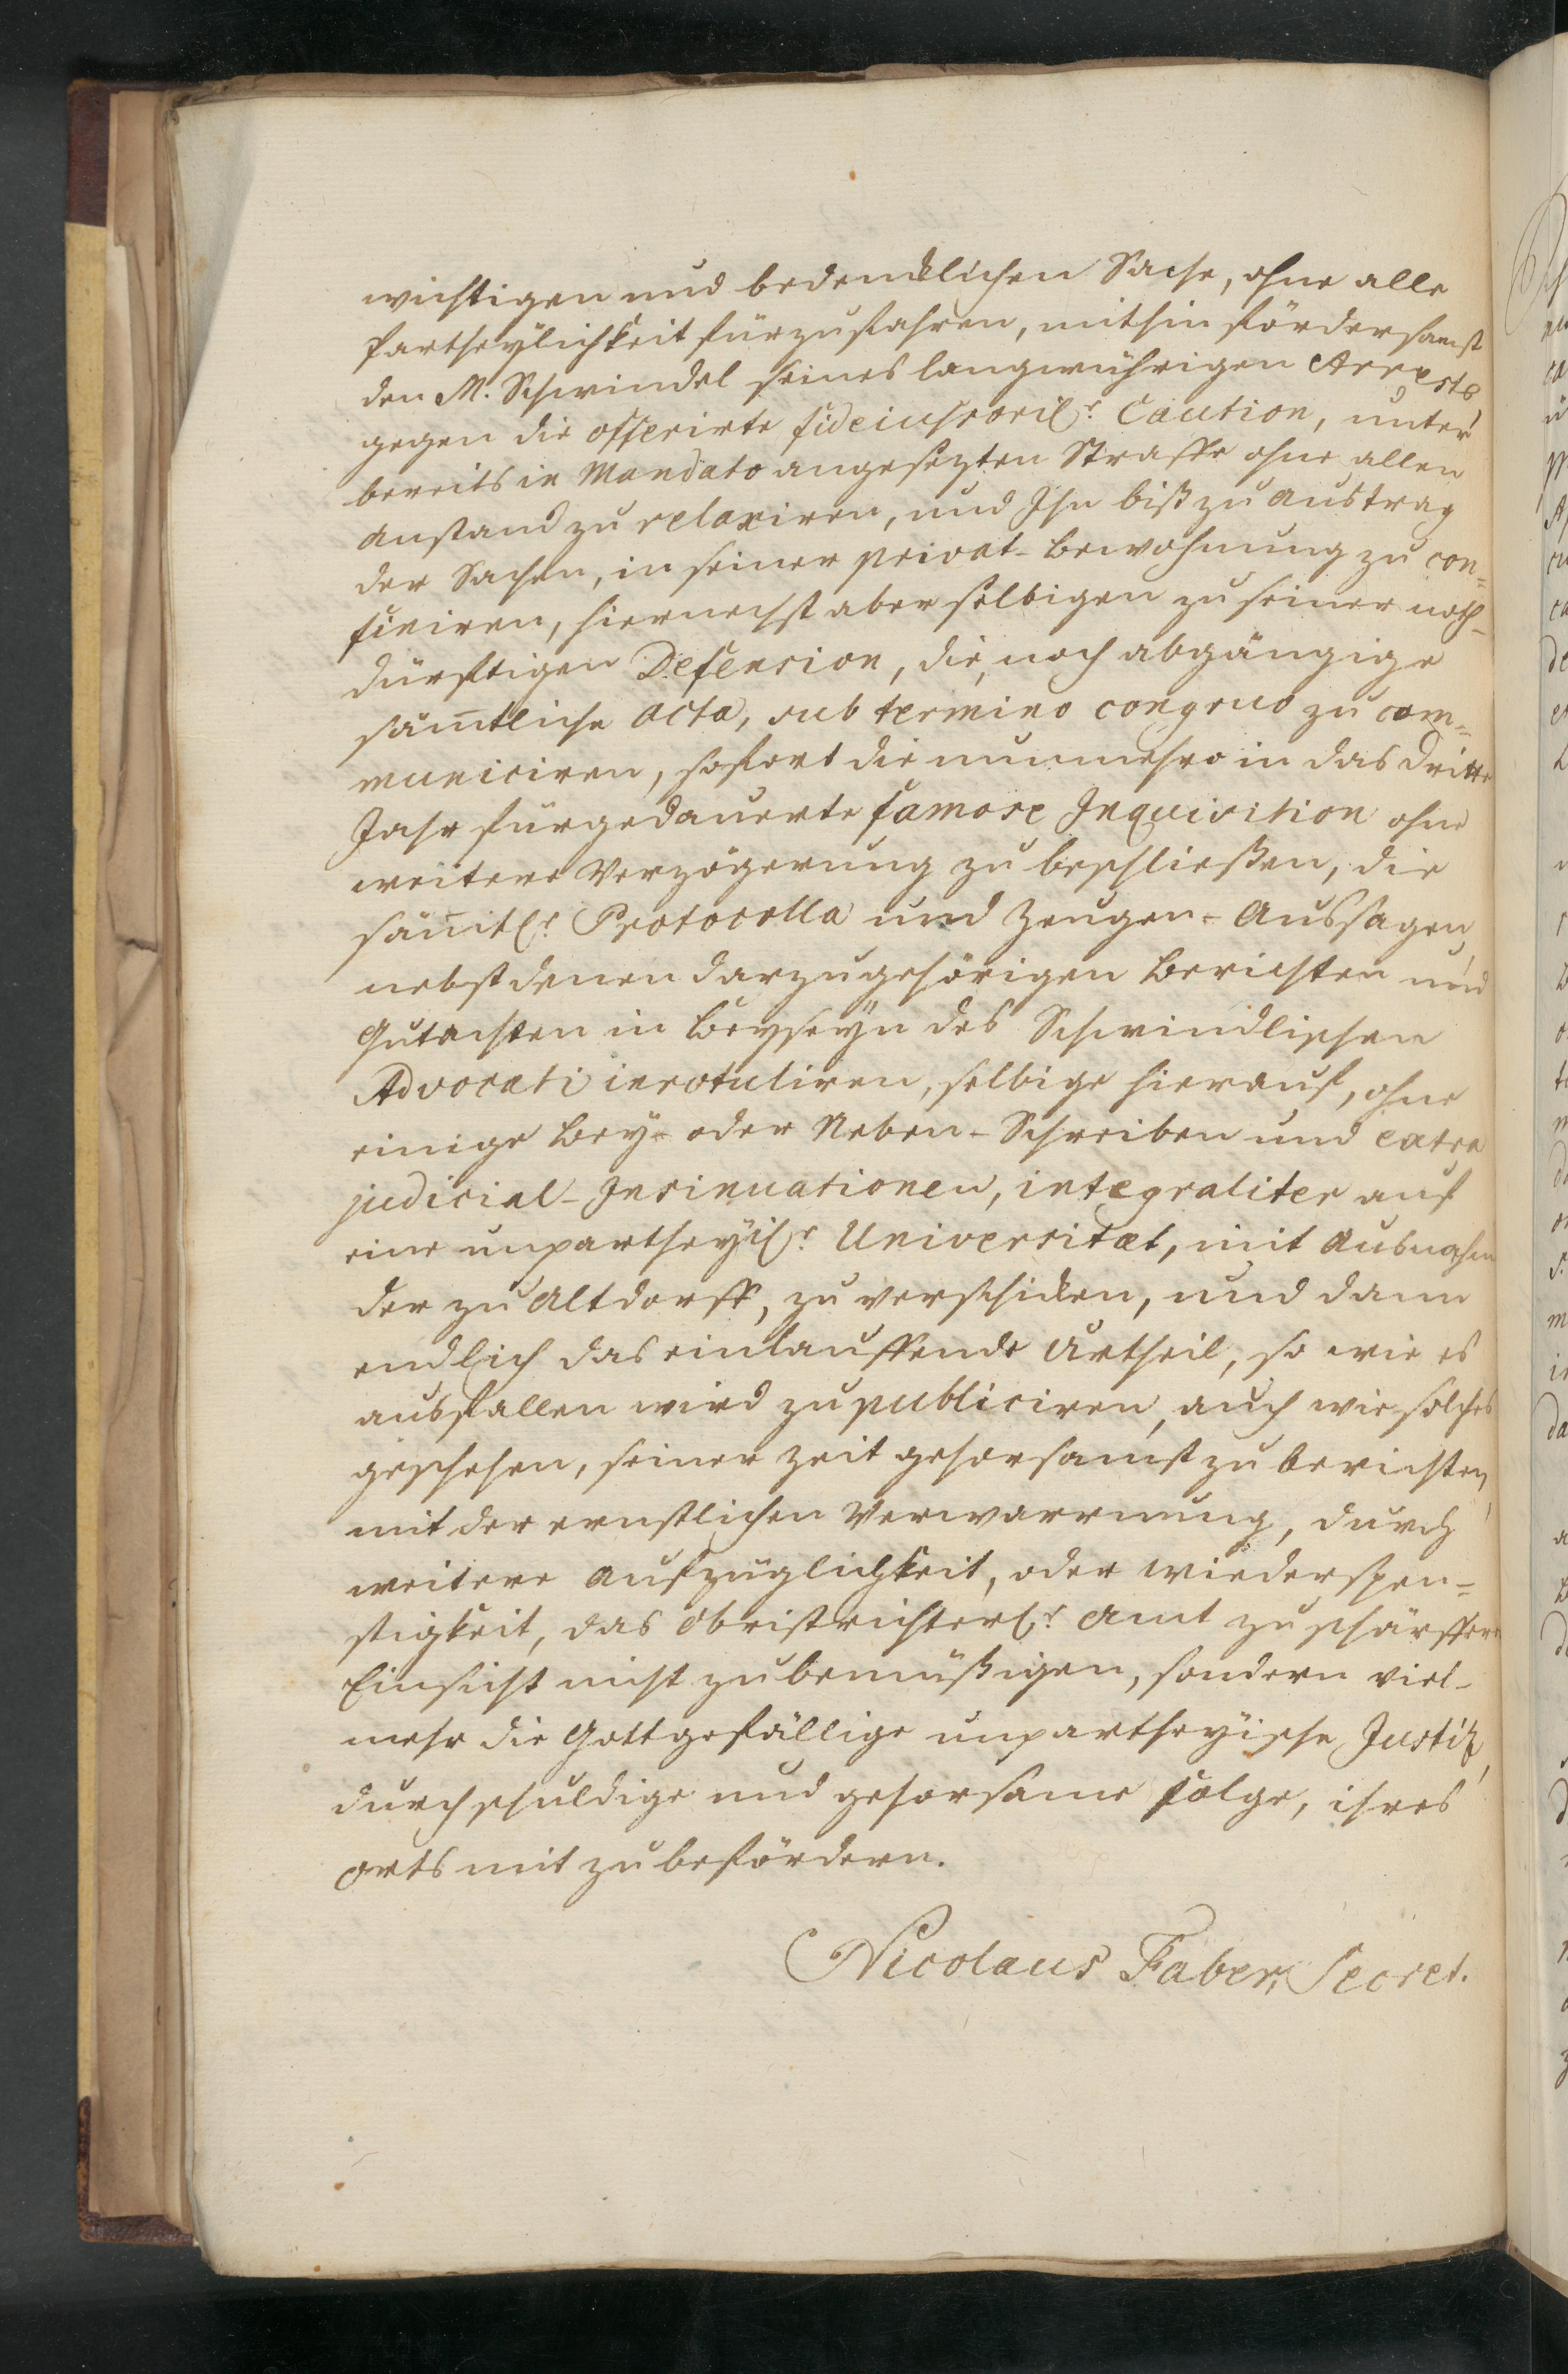 wichtigen und bedencklichen Sache, ohne alle
Partheylichkeit fürzufahren, mithin fördersamst
den M. Schwindel seines langwührigen Arrests
gegen die offerirte fideiussoril. Caution, unter
bereits in Mandato angesezten Straffe ohne allen
anstand zu relaxiren, und Ihn biß zu austrag
der Sachen, in seiner privat-bewohnung zu con=
finiren, hiernechst aber selbigen zu seiner noth-
dürfftigen Defension, die noch abgängige
sam̅tliche acta, sub termino congruo zu com=
municiren, sofort die nunmehro in das dritte
Jahr fürgedauerte famose Inquisition ohne
weitere Verzögerung zu beschließen, die
säm̅tl. Protocolla und Zeugen-Aussagen,
nebst denen darzugehörigen Berichten und
Gutachten in Beyseyn des Schwindlischen
Advocati inrotuliren, selbige hierauf, ohne
einige Bey- oder Neben-Schreiben und extra
judicial-Insinuationen, integraliter auf
eine unpartheyil. Universitæt, mit Ausnahm
der zu Altdorff, zu verschicken, und dann
endlich das einlauffende Urtheil, so wie es
ausfallen wird zu publiciren, auch wie solches
geschehen, seiner Zeit gehorsamst zu berichten,
mit der ernstlichen Verwarnung, durch
weitere Aufzüglichkeit, oder Wiederspen=
stigkeit, das obristrichterl. Amt zu schärffere
Einsicht nicht zubemüßigen, sondern viel-
mehr die Gottgefällige unpartheyische Justiz,
durch schuldige und gehorsame Folge, ihres
orts mit zu befördern.
Nicolaus Faber, Secret.